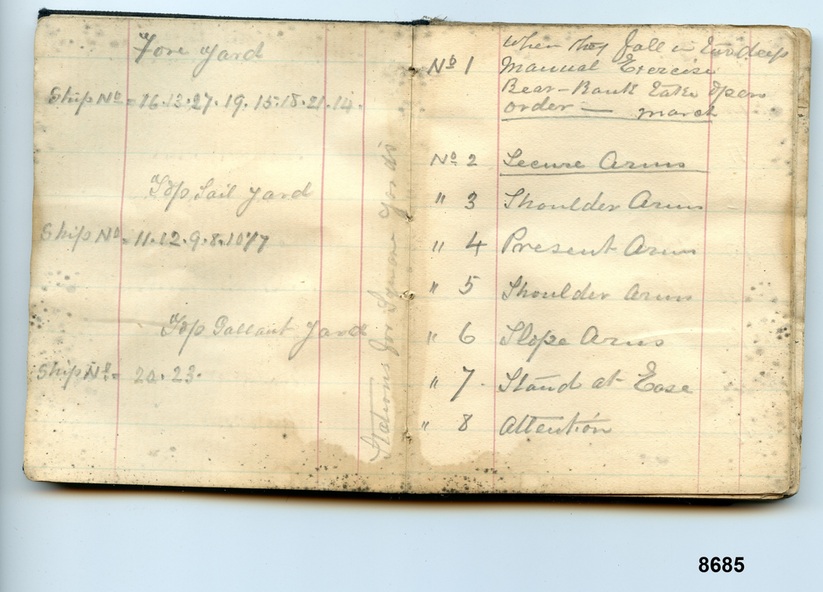 Fore Yard
Ship Nº = 16.13.27.19.15.18.21.14.
Top Sail Yard
Ship Nº = 11.12.9.8.10
Top Gallant Yard
Ship Nº = 20.23.
Stations for Square Yards
Nº 1 When they fall in two deep
Manual Exercise
Rear-Rank take open
order — march
Nº 2 Secure Arms
" 3 Shoulder Arms
" 4 Present Arms
" 5 Shoulder Arms
" 6 Slope Arms
" 7. Stand at Ease
" 8 Attention
8685